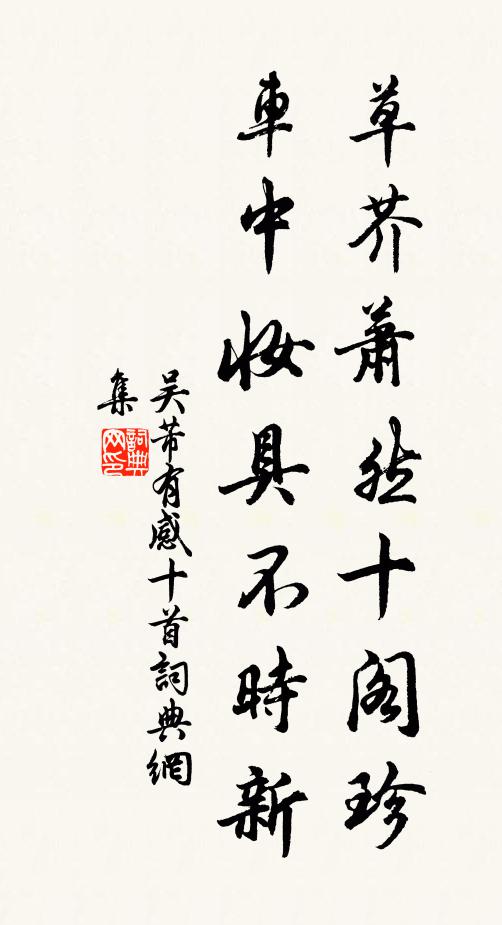 草芥蕭然十閣珍
車中妝具不時新
吴芾有感十首詞典網
集
詞典網印